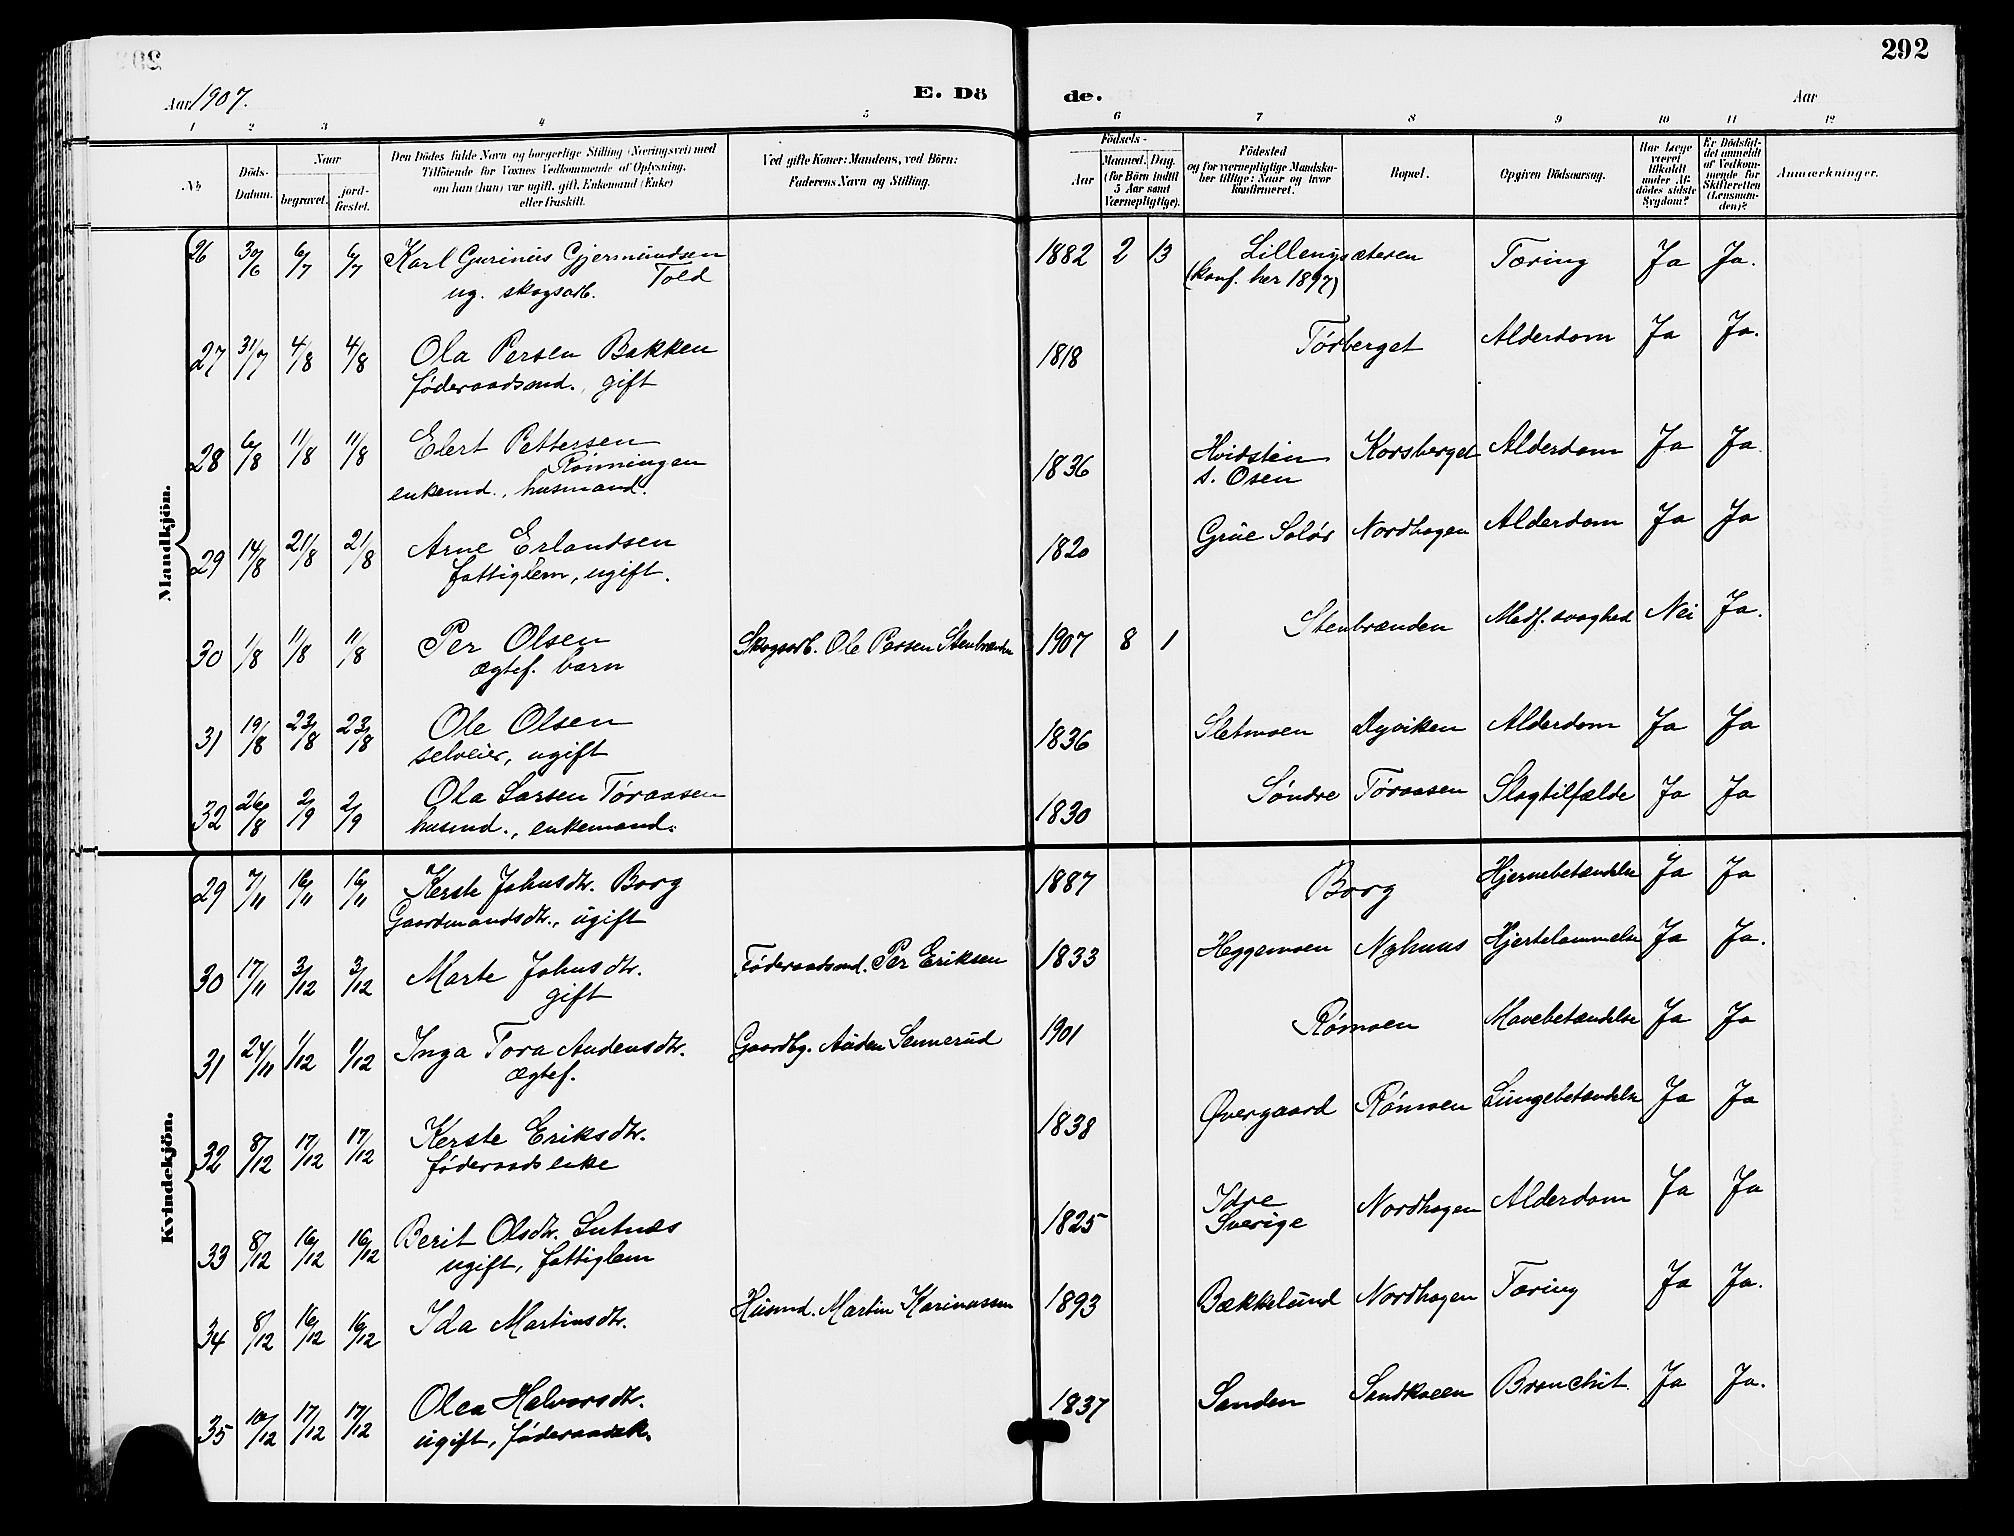 292
Aar 1907.
E. Dö
de.
Aar
1 2 3 4 5 6 7 8 9 10 11 12
No
Döds-
Datum.
Naar
begravet.
jord-
fæstet.
Den Dödes fulde Navn og borgerlige Stilling (Næringsvei) med
Tilföiende for Voxnes Vedkommende af Oplysning,
om han (hun) var ugift, gift, Enkemand (Enke)
eller fraskilt.
Ved gifte Koner: Mandens, ved Börn:
Faderens Navn og Stilling.
Födsels-
Aar
Maaned. Dag.
(for Börn indtil
5 Aar samt
Værnepligtige).
Födested
og for værnepligtige Mandska-
ber tillige: Naar og hvor
konfirmeret.
Bopæl.
Opgiven Dödsaarsag.
Har Læge
været
tilkaldt
under Af-
dödes sidste
Sygdom?
Er Dödsfal-
det anmeldt
af Vedkom-
mende for
Skifteretten
(Lensman-
den)?
Anmærkninger.
Mandkjön.
26 30/6 6/7 6/7 Karl Gurinius Gjermundsen 1882 2 13 Lillenysæteren Tæring Ja Ja.
Told
ug. skogsarb. (konf. her 1897)
27 31/7 4/8 4/8 Ola Persen Bakken 1818 Törberget Alderdom Ja Ja.
föderaadsmd., gift
28 6/8 11/8 11/8 Elert Pettersen 1836 Hvidsten Korsberget Alderdom Ja Ja.
Rönningen s. Osen
enkemd., husmand.
29 14/8 21/8 21/8 Arne Erlandsen 1820 Grue Solör Nordhagen Alderdom Ja Ja
fattiglem, ugift.
30 1/8 11/8 11/8 Per Olsen Skogsarb. Ole Persen Stenbrænden 1907 8 1 Stenbrænden Medf. svaghed Nei Ja.
ægtef. barn
31 19/8 23/8 23/8 Ole Olsen 1836 Sletmoen Dyviken Alderdom Ja Ja
selveier, ugift
32 26/8 2/9 2/9 Ola Larsen Töraasen 1830 Söndre Töraasen Slagtilfælde Ja Ja
husmd., enkemand.
Kvindekjön.
29 7/11 16/11 16/11 Kerste Johnsdtr. Borg 1887 Borg Hjernebetændelse Ja Ja
Gaardmandsdtr., ugift
30 17/11 3/12 3/12 Marte Johnsdtr. Föderaadsmd. Per Eriksen 1833 Heggemoen Nyhuus Hjertelammelse Ja Ja.
gift
31 24/11 1/12 1/12 Inga Tora Audensdtr. Gaardbg. Auden Sennerud 1901 Römoen Mavebetændelse Ja Ja
Ægtef.
32 8/12 17/12 17/12 Kerste Eriksdtr. 1838 Övergaard Römoen Lungebetændelse Ja Ja
föderaadsenke
33 8/12 16/12 16/12 Berit Olsdtr. Lutnæs 1825 Idre Nordhagen Alderdom Ja Ja
ugift, fattiglem Sverige
34 8/12 16/12 16/12 Ida Martinsdtr. Husmd. Martin Karinussen 1893 Bækkelund Nordhagen Tæring Ja Ja.
35 10/12 17/12 17/12 Olea Halvorsdtr. 1837 Sanden Sandkveen Bronchit. Ja Ja.
ugift, föderaadsk.